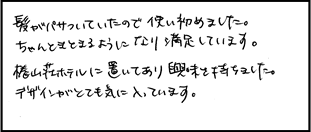 髪がパサついていたので使い初めました。
ちゃんとまとまるようになり満足しています。
椿山荘ホテルに置いてあり興味を持ちました。
デザインがとても気に入っています。